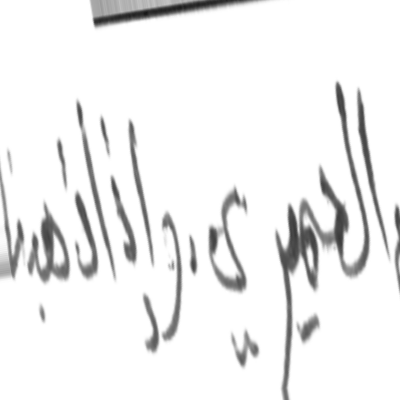 الحميري. واذا ذهبنا